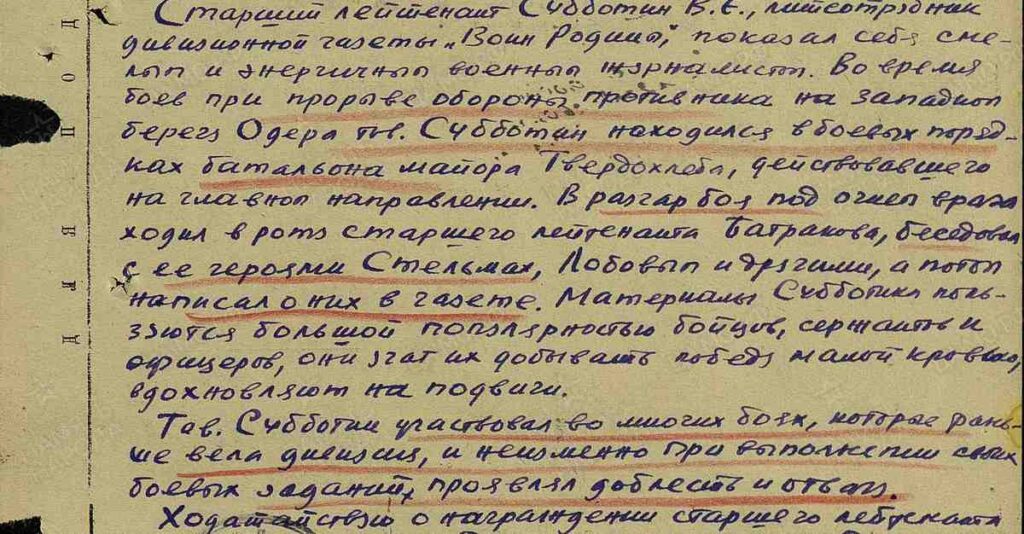 Старший лейтенант Субботин В.Е., литсотрудник
дивизионной газеты „Воин Родины", показал себя сме-
лым и энергичным военным журналистом. Во время
боев при прорыве обороны противника на западном
берегу Одера тов. Субботин находился в боевых поряд-
ках батальона майора Твердохлеба, действовавшего
на главном направлении. В разгар боя под огнем врага
ходил в роту старшего лейтенанта Батракова, беседовал
с ее героями Стельмах, Лобовым и другими, а потом
написал о них в газете. Материалы Субботина поль-
зуются большой популярностью бойцов, сержантов и
офицеров, они учат их добывать победу малой кровью,
вдохновляют на подвиги.
Тов. Субботин участвовал во многих боях, которые рань-
ше вела дивизия, и неизменно при выполнении своих
боевых заданий, проявлял доблесть и отвагу.
Ходатайствую о награждении старшего лейтенанта